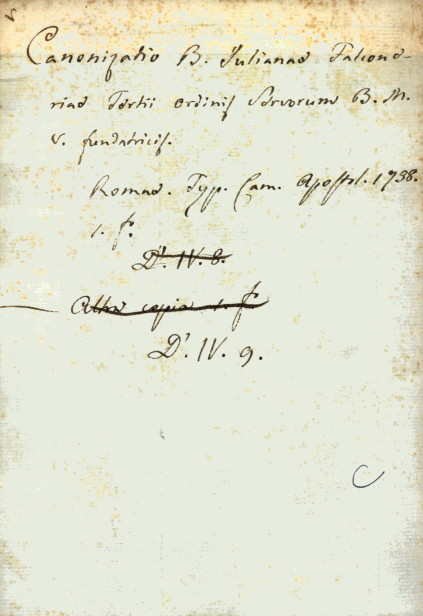 Canonizatio B. Julianae Falcone-
riae Tertii Ordinis Servorum B. M.
V. fundatricis.
Romae. Typ. Cam. Apostol. 1738.
1. f.
D'. IV. 8.
Altra copia 1. f.
D'. IV. 9.
C